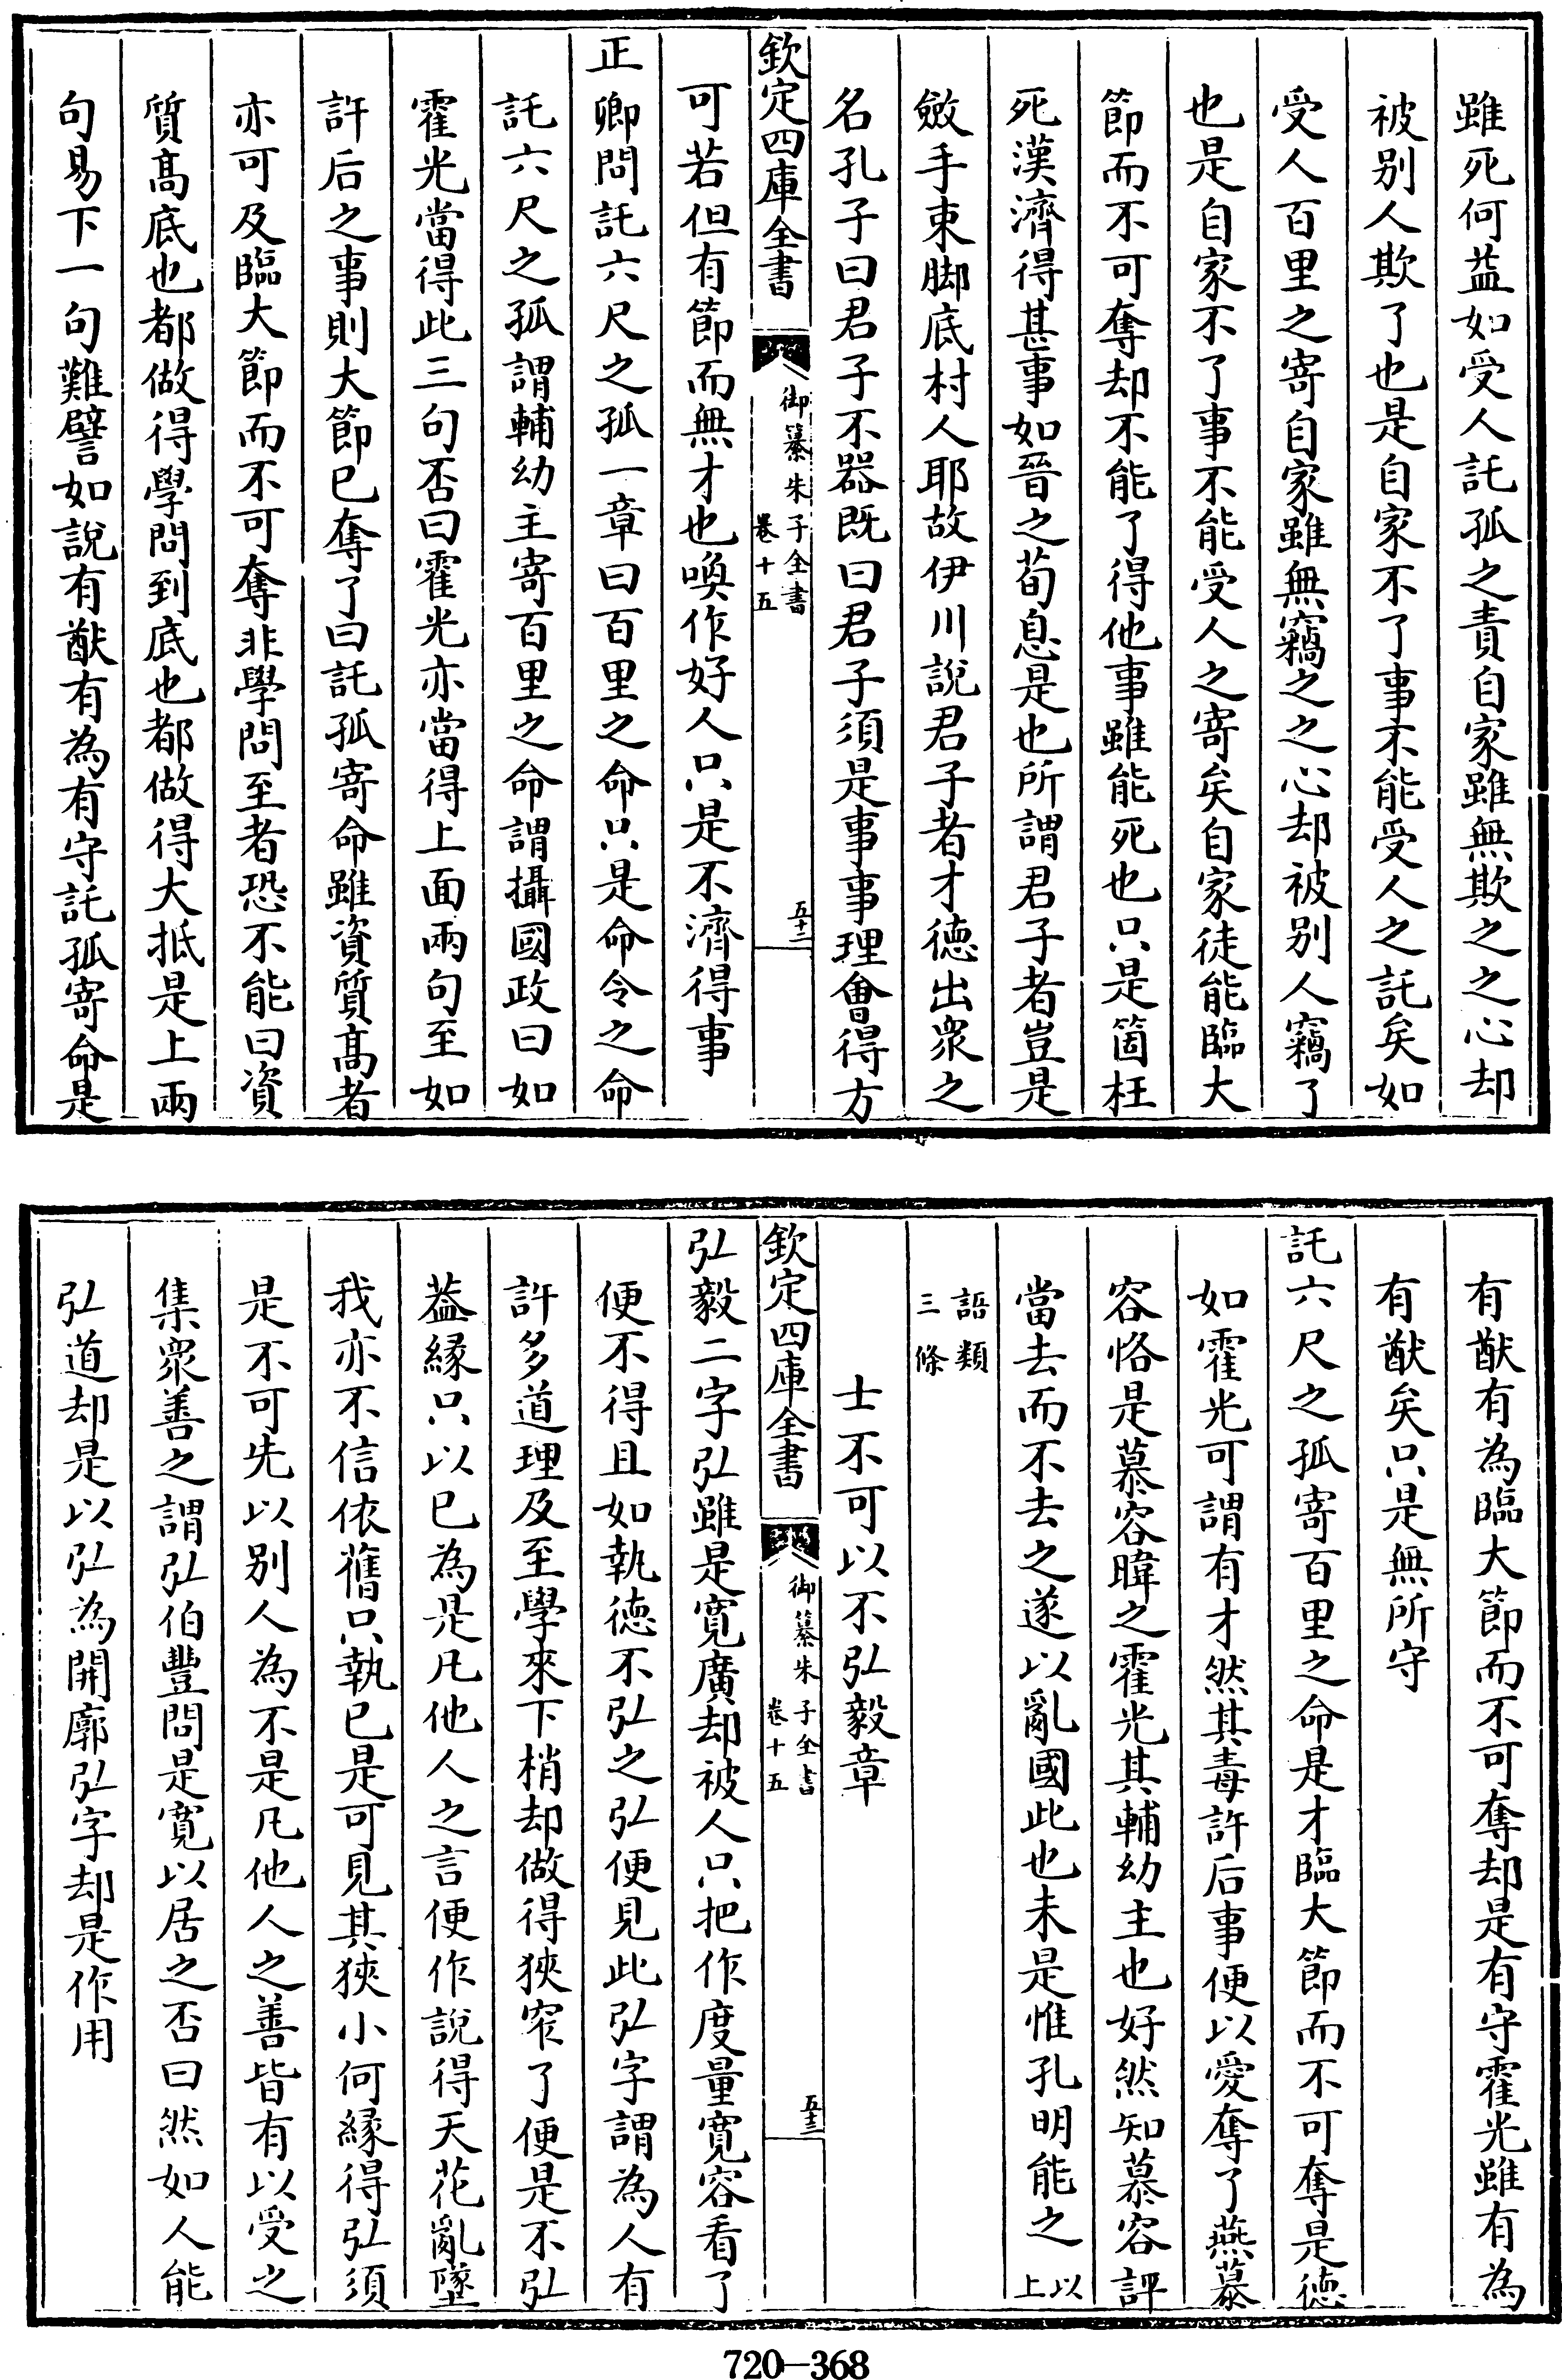 雖死何益如受人託孤之責自家雖無欺之之心却
被别人欺了也是自家不了事不能受人之託矣如
受人百里之寄自家雖無竊之之心却被别人竊了
也是自家不了事不能受人之寄矣自家徒能臨大
節而不可奪却不能了得他事雖能死也只是箇枉
死漢濟得甚事如晉之荀息是也所謂君子者豈是
斂手束脚底村人耶故伊川說君子者才德出衆之
名孔子曰君子不器既曰君子須是事事理會得方
欽定四庫全書
御纂朱子全書
卷十五
五十二
可若但有節而無才也喚作好人只是不濟得事
正卿問託六尺之孤一章曰百里之命只是命令之命
託六尺之孤謂輔幼主寄百里之命謂攝國政曰如
霍光當得此三句否曰霍光亦當得上面兩句至如
許后之事則大節已奪了曰託孤寄命雖資質髙者
亦可及臨大節而不可奪非學問至者恐不能曰資
質髙底也都做得學問到底也都做得大抵是上兩
句易下一句難譬如說有猷有為有守託孤寄命是
有猷有為臨大節而不可奪却是有守霍光雖有為
有猷矣只是無所守
託六尺之孤寄百里之命是才臨大節而不可奪是德
如霍光可謂有才然其毒許后事便以愛奪了燕慕
容恪是慕容暐之霍光其輔幼主也好然知慕容評
當去而不去之遂以亂國此也未是惟孔明能之以上
語類
三條
士不可以不弘毅章
欽定四庫全書
御纂朱子全書
卷十五
五十三
弘毅二字弘雖是寛廣却被人只把作度量寛容看了
便不得且如執德不弘之弘便見此弘字謂為人有
許多道理及至學來下梢却做得狹窄了便是不弘
葢緣只以已為是凡他人之言便作說得天花亂墜
我亦不信依舊只執已是可見其狹小何緣得弘須
是不可先以别人為不是凡他人之善皆有以受之
集衆善之謂弘伯豐問是寛以居之否曰然如人能
弘道却是以弘為開廓弘字却是作用
720-368